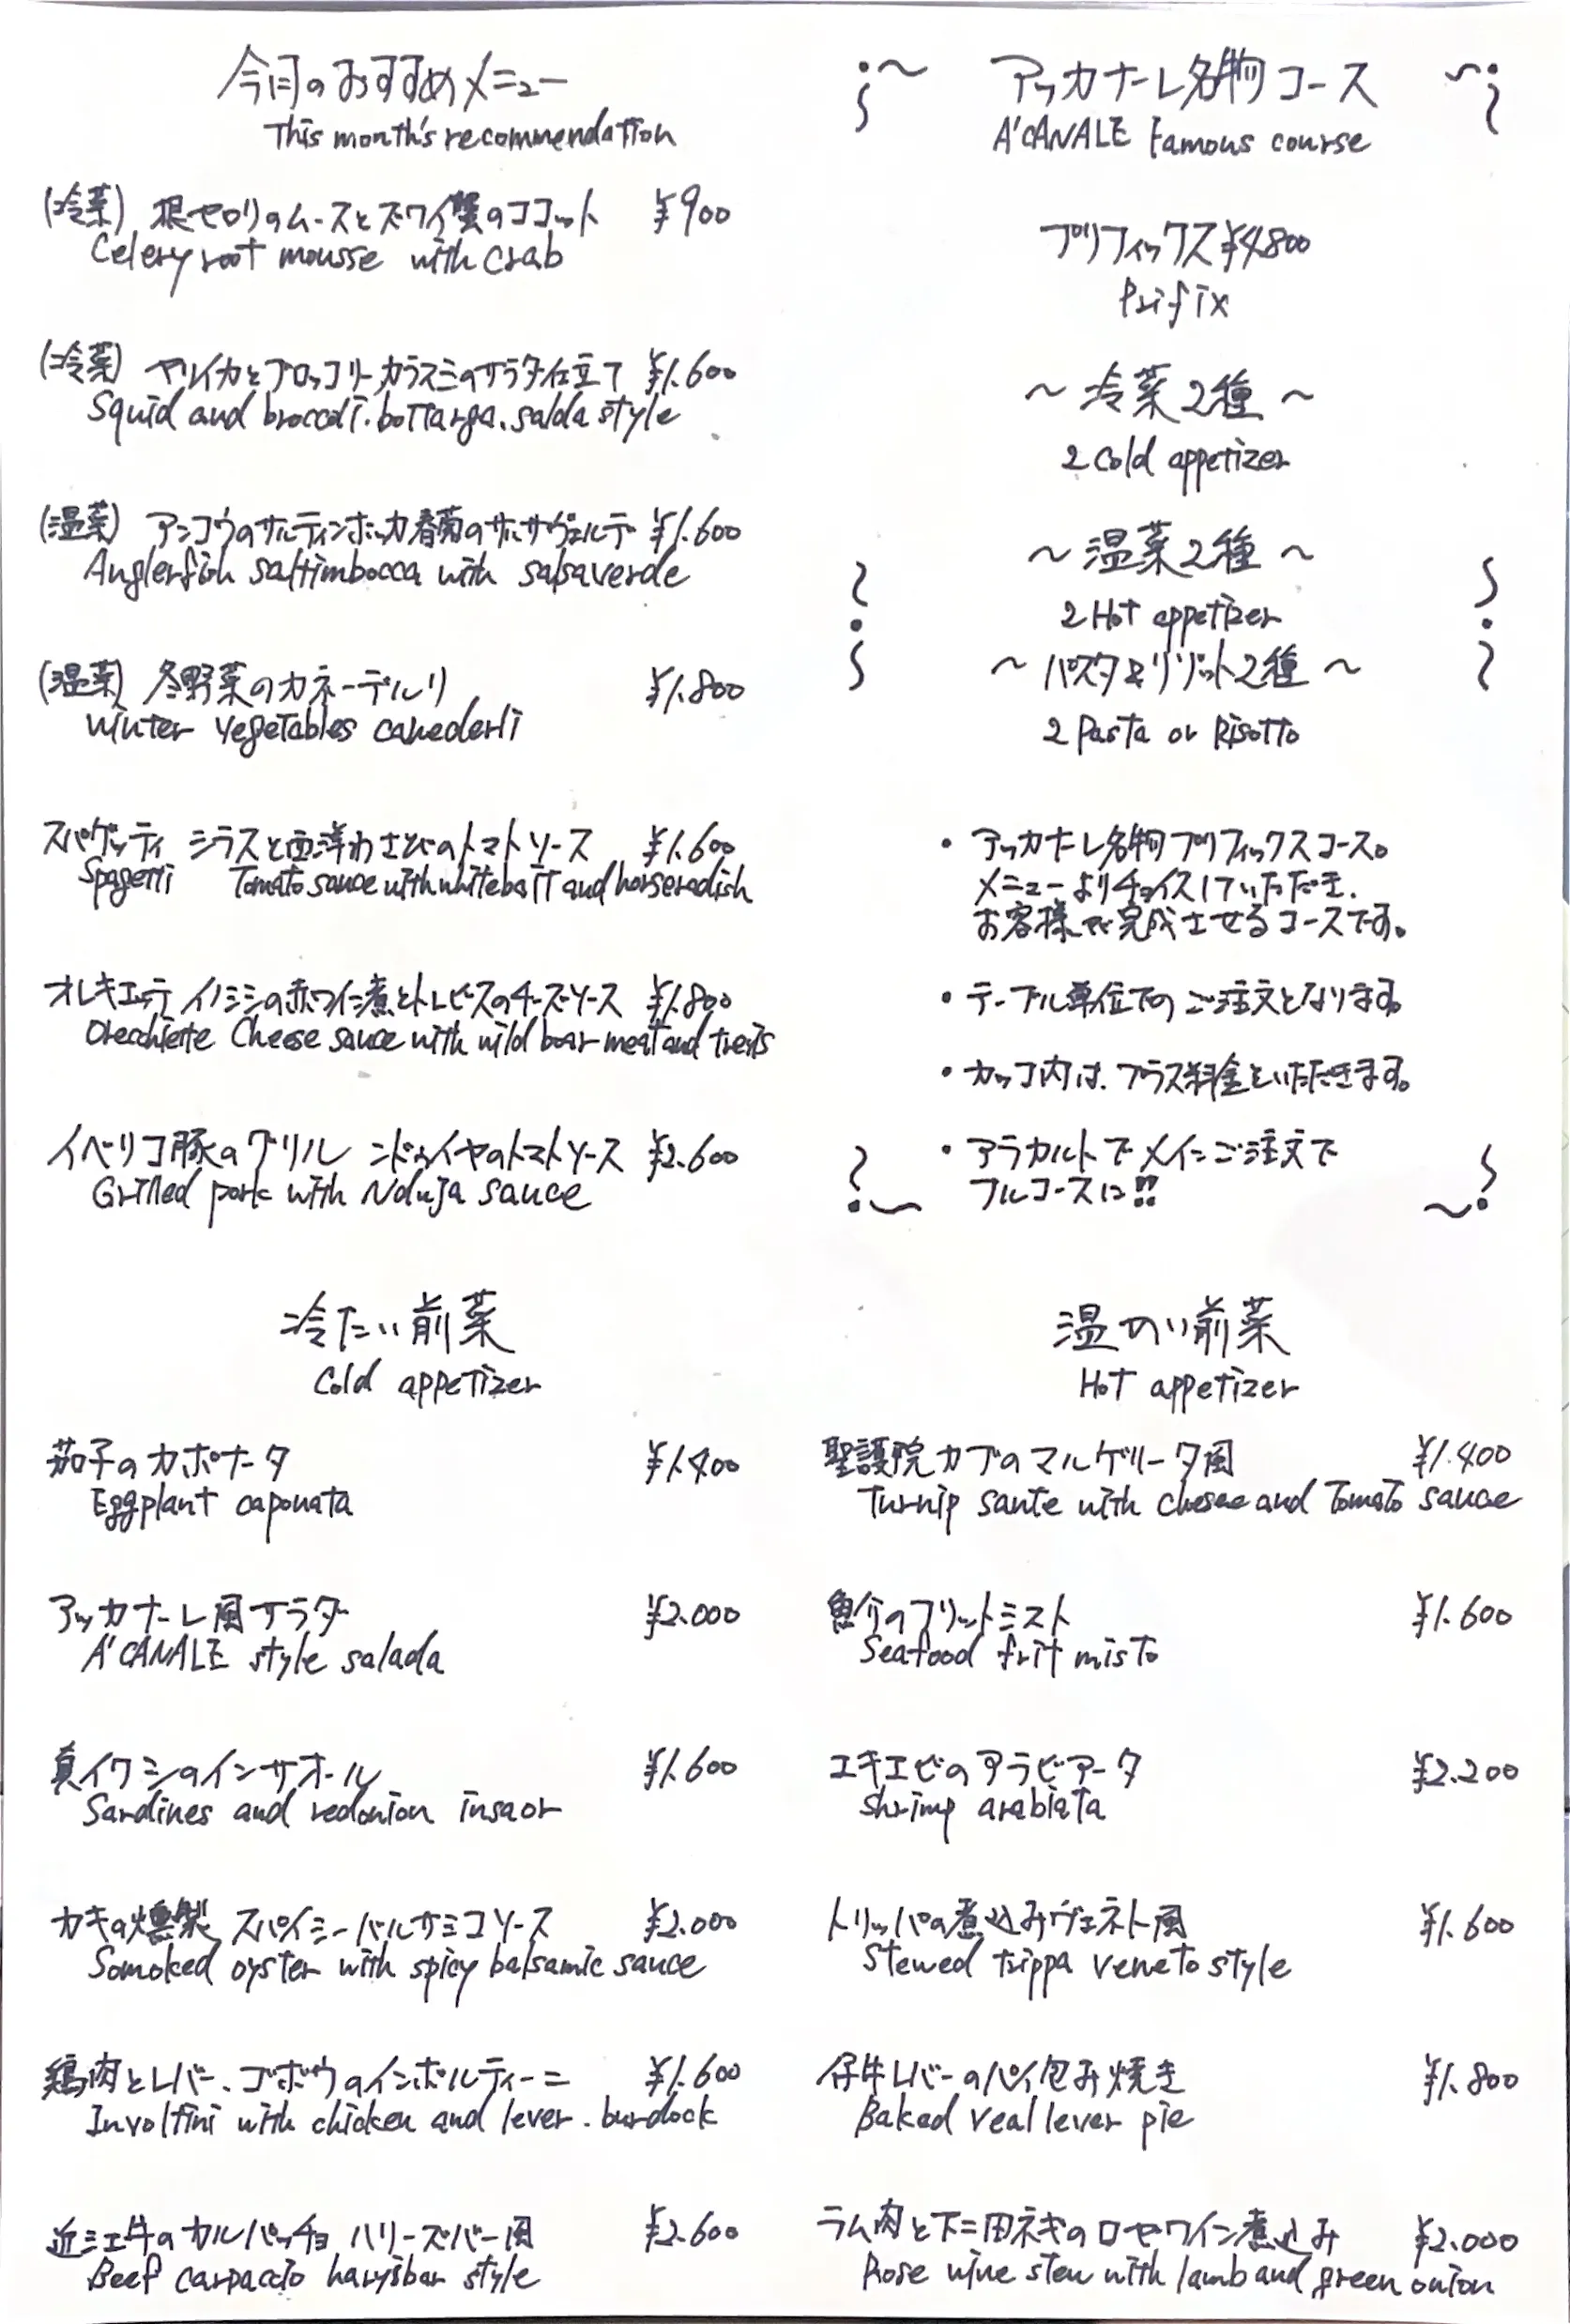 今月のおすすめメニュー
This month's recommendation
(冷菜) 根セロリのムースとズワイ蟹のココット ¥900
Celery root mousse with crab
(冷菜) ヤリイカとブロッコリーカラスミのサラダ仕立て ¥1.600
Squid and broccoli.bottarga.salda style
(温菜) アンコウのサルティンボッカ春菊のサルサヴェルデ ¥1.600
Anglerfish saltimbocca with salsaverde
(温菜) 冬野菜のカネーデルリ ¥1.800
Winter vegetables canederli
スパゲッティ シラスと西洋わさびのトマトソース ¥1.600
Spagetti Tomato sauce with whitebait and horseradish
オレキエッテ イノシシの赤ワイン煮とトレビスのチーズソース ¥1.800
Orecchiette Cheese sauce with wild boar meat and trevis
イベリコ豚のグリル ンドゥイヤのトマトソース ¥2.600
Grilled pork with Nduja sauce
アッカナーレ名物コース
A'CANALE Famous course
プリフィックス¥4.800
Prifix
～ 冷菜2種 ～
2 Cold appetizer
～ 温菜2種 ～
2 Hot appetizer
～ パスタ&リゾット2種 ～
2 Pasta or Risotto
・アッカナーレ名物プリフィックスコース。
メニューよりチョイスしていただき、
お客様で完成させるコースです。
・テーブル単位でのご注文となります。
・カッコ内は、プラス料金といただきます。
・アラカルトでメインご注文で
フルコースに!!
冷たい前菜
Cold appetizer
茄子のカポナータ ¥1.400
Eggplant caponata
アッカナーレ風サラダ ¥2.000
A'CANALE style salada
真イワシのインサオール ¥1.600
Sardines and redonion insaor
カキの燻製 スパイシーバルサミコソース ¥2.000
Somoked oyster with spicy balsamic sauce
鶏肉とレバー、ゴボウのインボルティーニ ¥1.600
Involtini with chicken and lever.burdock
近江牛のカルパッチョ ハリーズバー風 ¥2.600
Beef carpaccio harysbar style
温かい前菜
Hot appetizer
聖護院カブのマルゲリータ風 ¥1.400
Turnip saute with cheese and Tomato sauce
魚介のフリットミスト ¥1.600
Seafood frit misto
エキエビのアラビアータ ¥2.200
Shrimp arabiata
トリッパの煮込みヴェネト風 ¥1.600
Stewed trippa veneto style
仔牛レバーのパイ包み焼き ¥1.800
Baked veal lever pie
ラム肉と下仁田ネギのロゼワイン煮込み ¥2.000
Rose wine stew with lamb and green onion